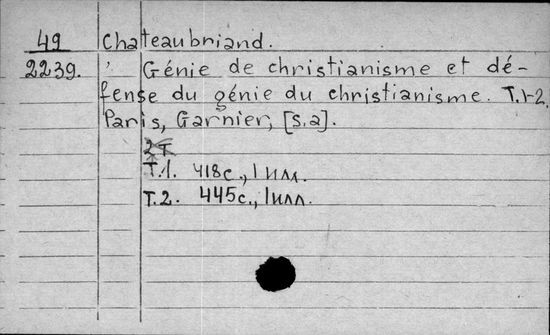 49 Chateaubriand.
2239. Génie de christianisme et dé-
fense du génie du christianisme. T.1-2.
Paris, Garnier, [s.a].
2т
Т.1. 418с., 1 илл.
Т.2. 445с., 1 илл.